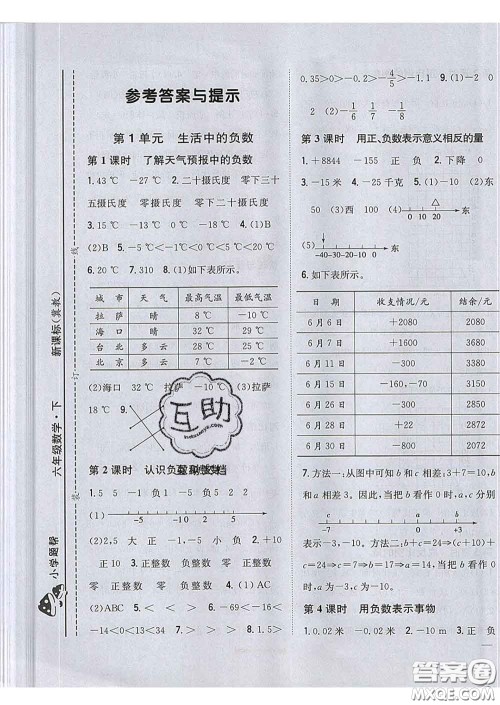 参考答案与提示
第1单元 生活中的负数
第1课时 了解天气预报中的负数
1.43 ℃ －27 ℃ 2.二十摄氏度 零下三十
五摄氏度 零摄氏度 零下二十摄氏度
3.15 ℃ －15 ℃ 0 ℃ 4.(1)B
(2)B 5.－15℃＜－5℃＜0℃＜20℃
6.20 ℃ 7.310 8.(1)如下表所示。
城 市 天 气 最高气温 最低气温
拉 萨 晴 8 ℃ －10 ℃
海 口 晴 32 ℃ 19 ℃
台 北 多云 28 ℃ 18 ℃
北 京 多云 7 ℃ －2 ℃
(2)海口 32 ℃ 拉萨 －10 ℃ (3)拉萨
18 ℃ 9.
互助
第2课时 认识负
1.5 5 －1 －5 负 5 2 2
(1)
－5 0 5
(2)2,5 大 正 －1,－5 小 负 2.0 正
正10 3.正整数 负整数 零 正整数
零 正整数 负整数 零 4.(1)AC
(2)ABC 5.＜ ＜ ＞ ＜ 6.－16＜
－14＜0＜13＜34 7.＞ ＜ ＜ 8.1.5＞
0.35＞0＞－1/5＞－2＞－4/5 9.(1)－2
2 (2)－1/6 1/6 －1/6
第3课时 用正、负数表示意义相反的量
1.＋8844 －155 正 负 2.下降 0
3.－15米 4.－25千克 5.(1)－30
(2)50 (3)西 100 (4)
－10 0 10 20 东
(5)
－40－30－20－10 0 东
6.如下表所示。
日 期 收支情况/元 结余/元
6月6日 ＋2080 2080
6月11日 －300 1780
6月15日 －160,－70 2550
6月16日 －3372
6月28日 ＋2872
6月30日 －800 2072
7.方法一:从图中可知b和c相差:3＋7＝10,
即b和c相差10,当把b看作0时,a,c分别
b a c
－3 0 ＋7
表示－3,－10。方法二:b＋c＝24→(b＋10)
＋c＋10＝24→b＋c＝14→c＝17→
a＝14,当把b看作0时,a是－3,c是－10。
第4课时 用负数表示事物
1.0.02米 －0.02米 2.－10 m 3.正 负
新课标(冀教)
六年级数学·下
小学题帮
装
订
线
答案圈
MXQE.COM